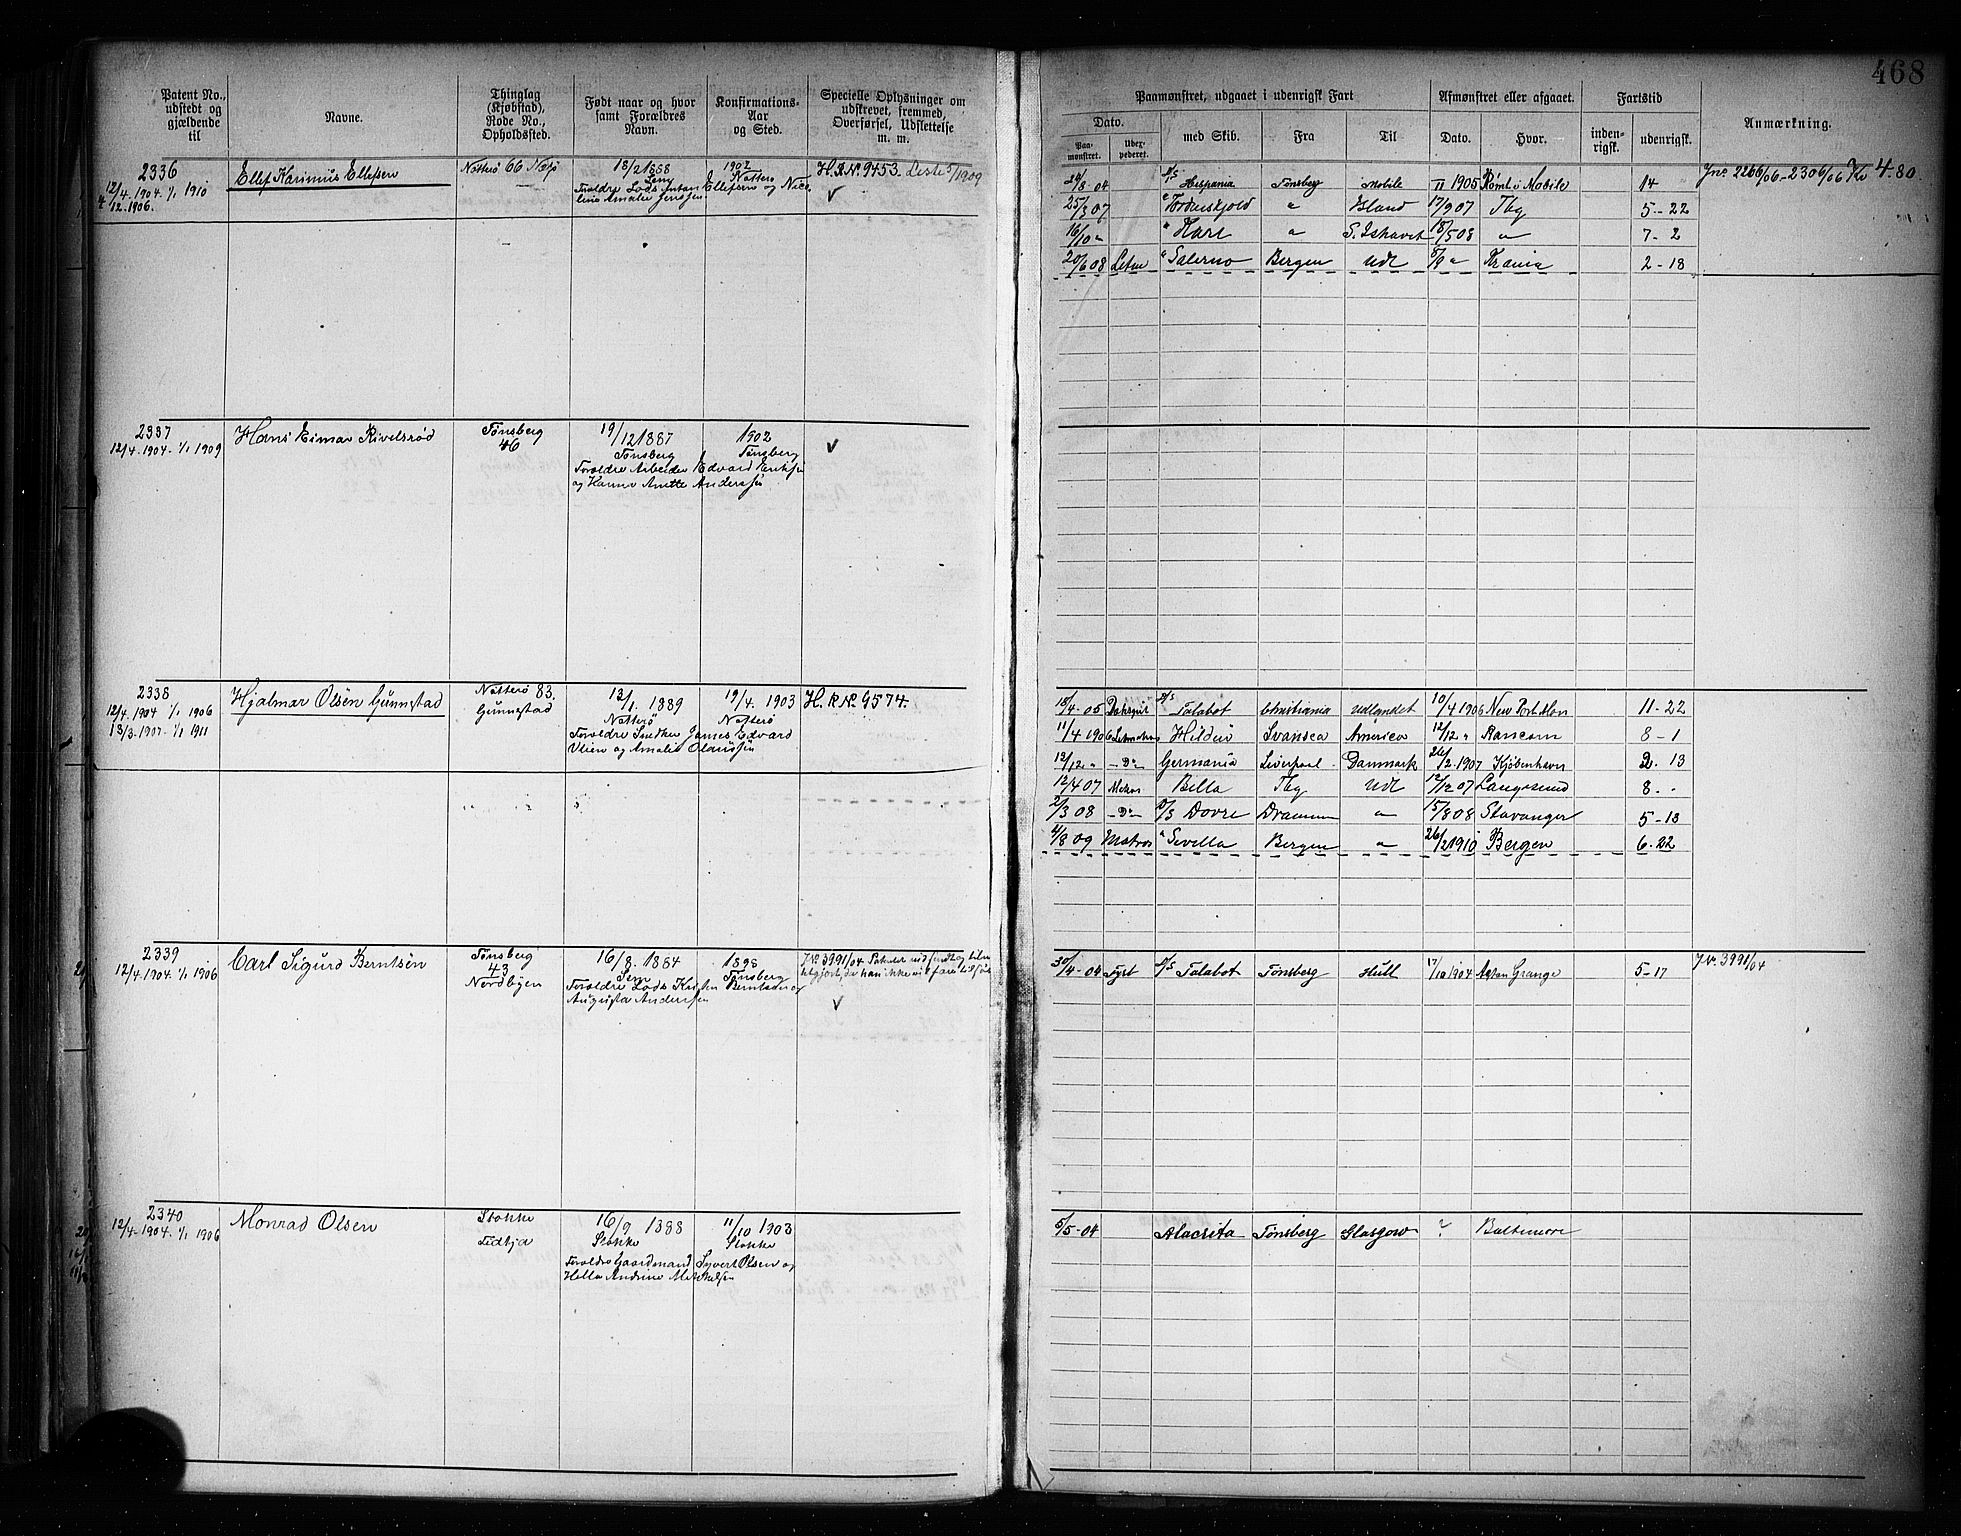 468
Patent No., udstedt og gjældende til
Navne.
Thinglag (Kjøbstad), Rode No., Opholdssted.
Født naar og hvor samt Forældres Navn.
Konfirmations-Aar og Sted.
Specielle Oplysninger om udskrevet, fremmed, Overførsel, Udslettelse m. m.
Paamønstret, udgaaet i udenrigsk Fart
Afmønstret eller afgaaet.
Fartstid
Anmærkning.
Dato.
Paa-mønstret.
med Skib.
Fra
Til
Dato.
Hvor.
inden-rigsk.
udenrigsk.
2336
12/4. 1904. 1/1 1910
4/12. 1906.
Ellef Karinius Ellefsen
Nøtterø 66
18/2 1888
Sem
1902
Nøtterø
H.R.No. 9453.
5/1 1909
Forældre Lods Antan Ellefsen og Nico
line Amalie Jensen
24/8 04 S/S Hispania Tønsberg Mobile 11 1905 Rømt i Mobile 14
Jnr. 2266/06 - 2306/06 Kr 4.80
25/3 07 " Tordenskjold " Island 17/9 07 Tbg 5-22
16/10 " " Kart " S. Ishavet 18/5 08 " 7-2
20/6 08 Letm " Salerno Bergen Udl 8/9 " Kr.ania 2-18
2337
12/4. 1904. 1/1 1909
Hans Eimar Rivelsrød
Tønsberg
46
19/12 1887
Tønsberg
1902
Tønsberg
Forældre Arbeider Edvard Eriksen
og Hanna Anette Anderssen
2338
12/4. 1904 1/1 1906
13/3. 1907. 1/1 1911
Hjalmar Olsen Gunnestad
Nøtterø 83.
Gunnestad
13/1. 1889
Nøtterø
19/4. 1903
Nøtterø
H.R.No. 9574.
Forældre Snedker James Edvard
Olsen og Amalie Olaussen
18/4-05 S/S Talabot Christiania Udlandet 10/4 1906 New Port Mon 11-22
11/4 1906 Letmatros Hildur Svansea America 12/12 " Rancorn 8-1
12/12 " -Do- Germania Liverpool Danmark 26/2 1907 Kjøbenhavn 2. 13
12/4 07 Bella Tbg Udl 12/12 07 Langesund 8 - .
2/3 08 -Do- D/S Dovre Drammen " 15/8 08 Stavanger 5-13
4/8 09 Matros " Sevilla Bergen " 26/2 1910 Bergen 6. 22
2339
12/4. 1904. 1/1 1906
Carl Sigurd Berntsen
Tønsberg
43
Nordbyen
16/8. 1884
Sem
1898
Tønsberg
JNo. 3991/04
Forældre Lods Kristen Berntsen og
Augusta Andersen
30/4-04 Jgst S/S Talabot Tønsberg Hull 17/10 1904 Grange 5-17
JNr. 3991/04
2340
12/4. 1904. 1/1 1906
Monrad Olsen
Stokke
Fedtja
16/9 1888
Stokke
11/10 1903
Stokke
Forældre Gaardmand Syvert Olsen og
Helle Andrine Mikkelsen
5/5-04 Alacrita Tønsberg Glasgow ? Baltimore